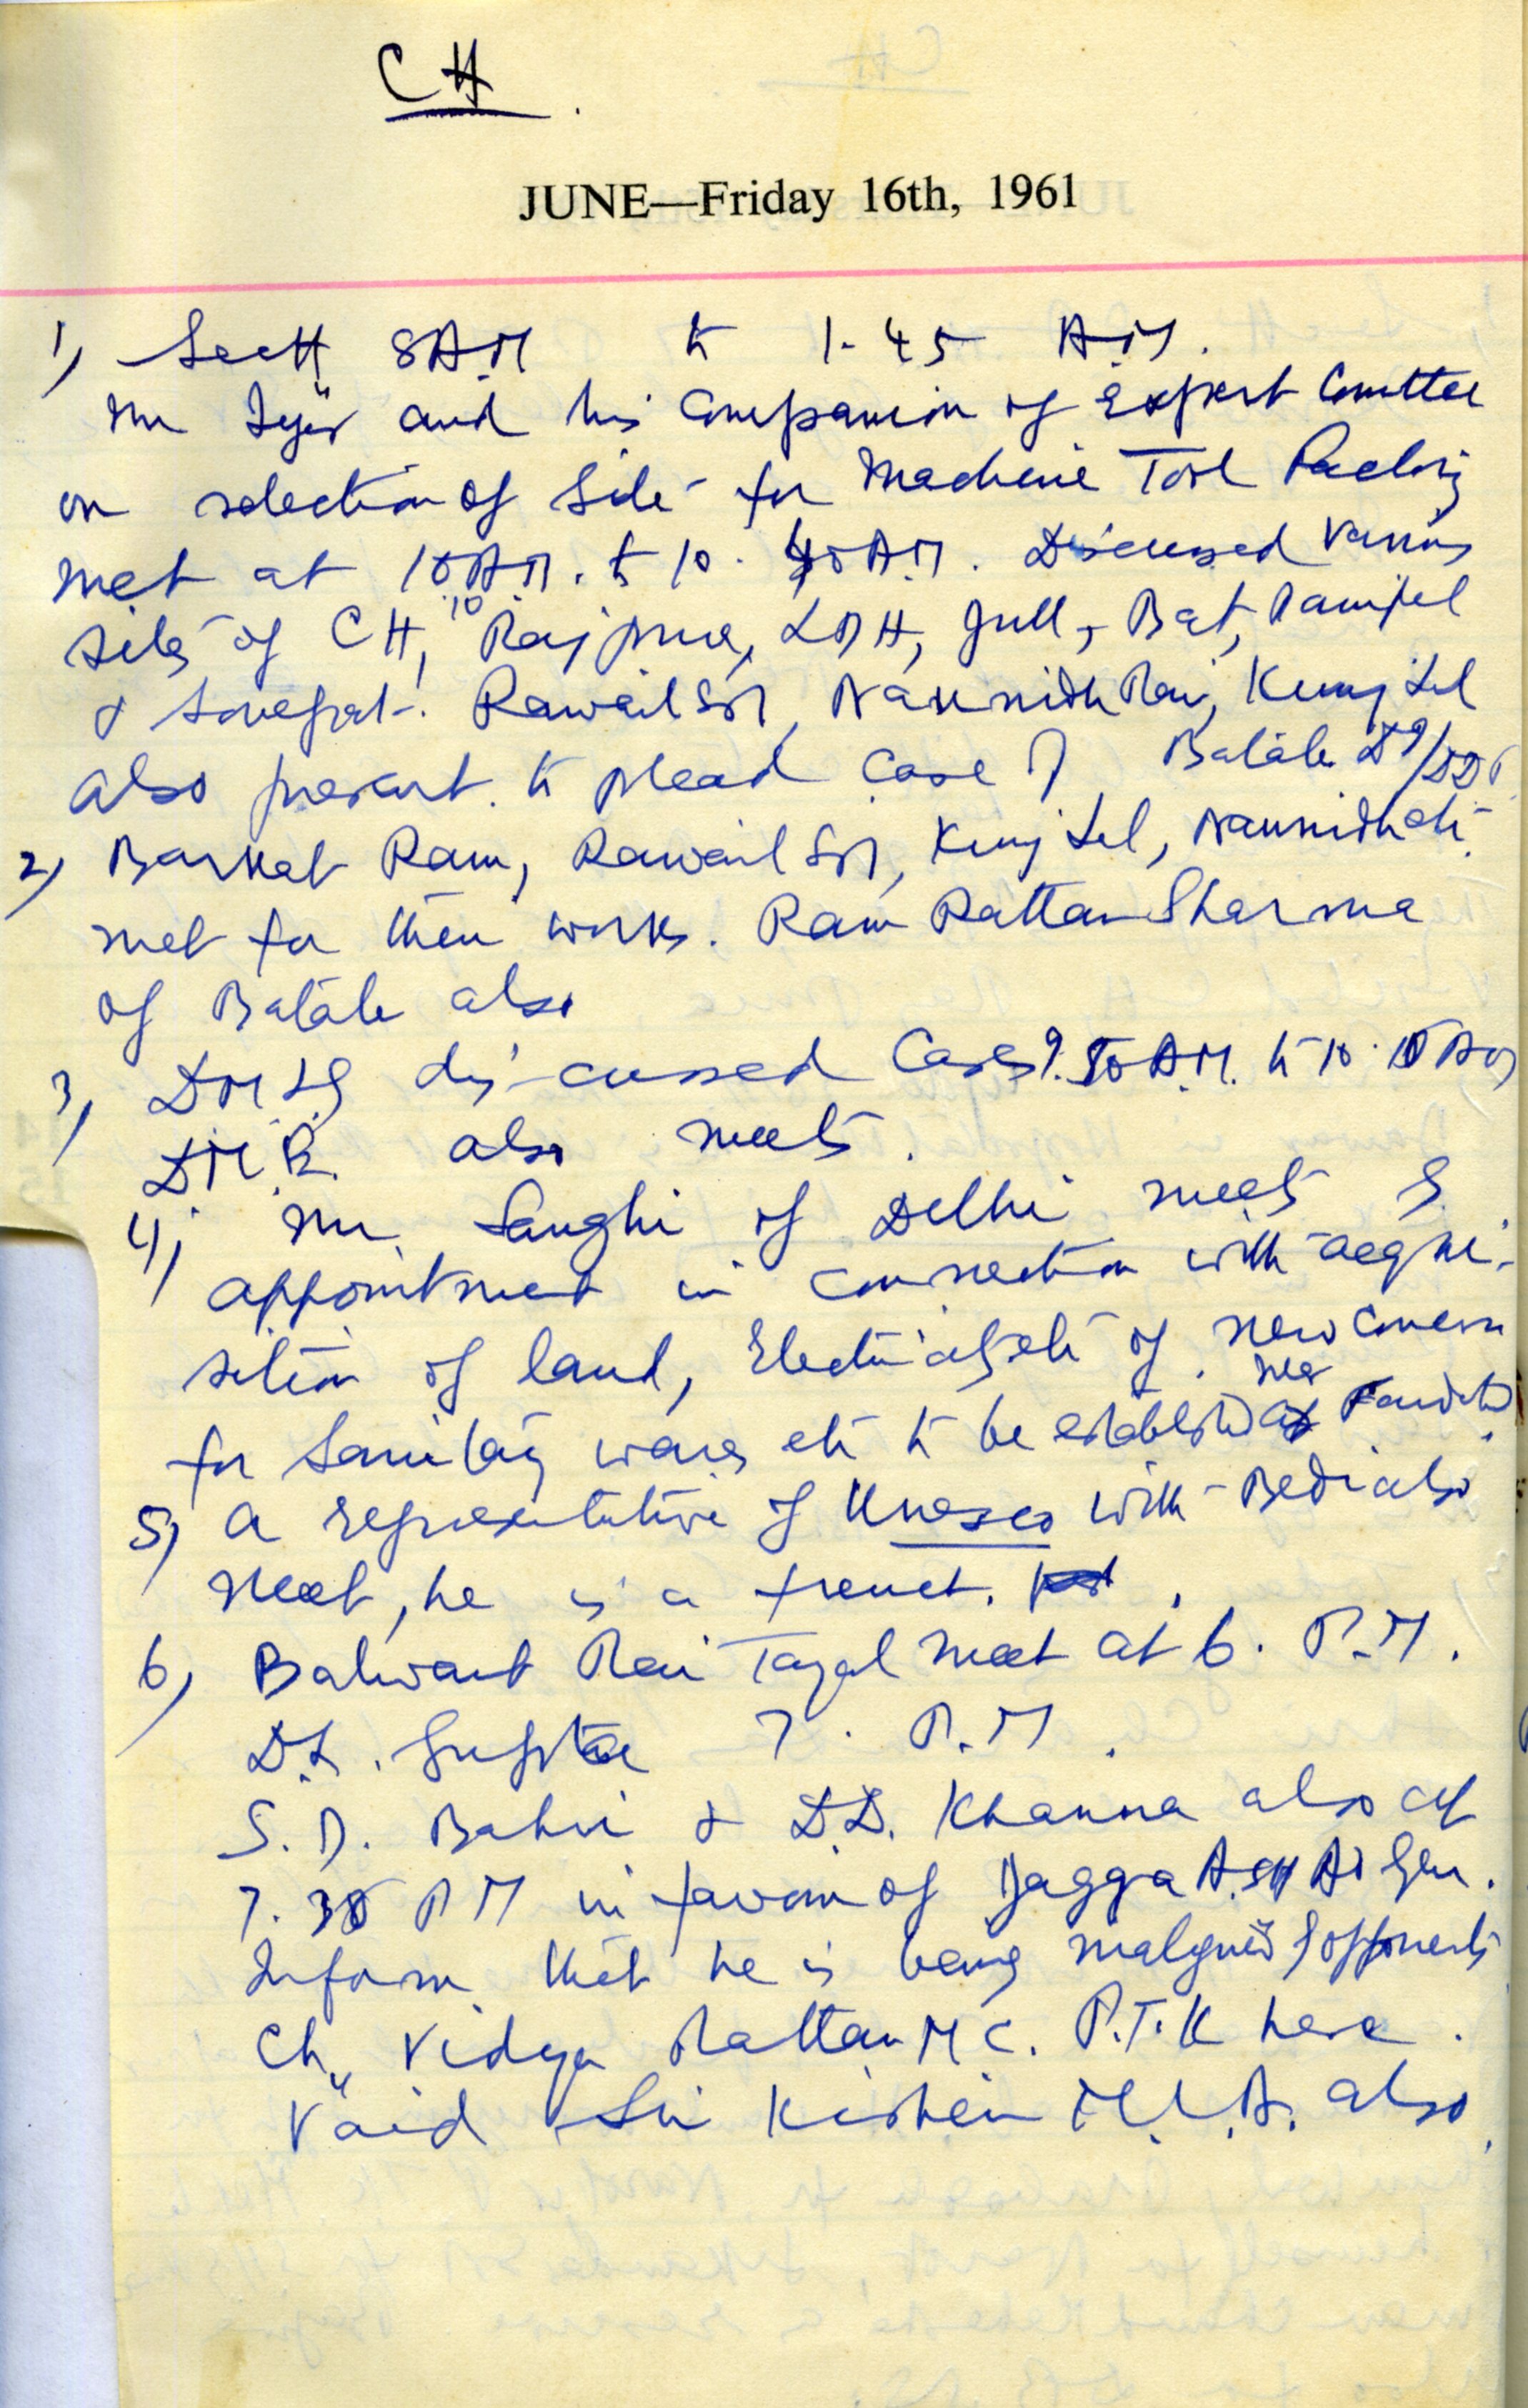 CH.
JUNE—Friday 16th, 1961
1) Sectt 8 A.M to 1.45 A.M.
Mr Iyer and his Companion of Expert Comttee
on selection of site for Machine Tool Factory
met at 10 A.M. to 10. A.M. Discussed various
sites of CH, Rajpura, LDH, Jull, Bat, Panipat
& Sonepat. Rawail, Naunidh Rai, Kunj Lal
also present to plead case of Batala
2) Barkat Ram, Rawail, Kunj Lal, Naunidh etc
met for their works. Ram Rattan Sharma
of Batala also
3) D.M.L.G discussed Cases 9. A.M. to 10. A.M
D.M.R. also meets.
4) Mr. Sanghi of Delhi meets &
appointment in connection with acqui-
sition of land, of new concern
for Sanitary wares etc to be established near
5) A representative of Unesco with Bedi also
meet, he is a french.
6) Balwant Rai Tayal meet at 6. P.M.
D.L. Gupta 7. P.M.
S.P. Bahri & D.D. Khanna also at
7.30 PM in favour of Jagga
Inform that he is being maligned opponents
Ch. Vidya Rattan M C. P.T.K here.
Vaid Sri Kishen M.L.A. also.